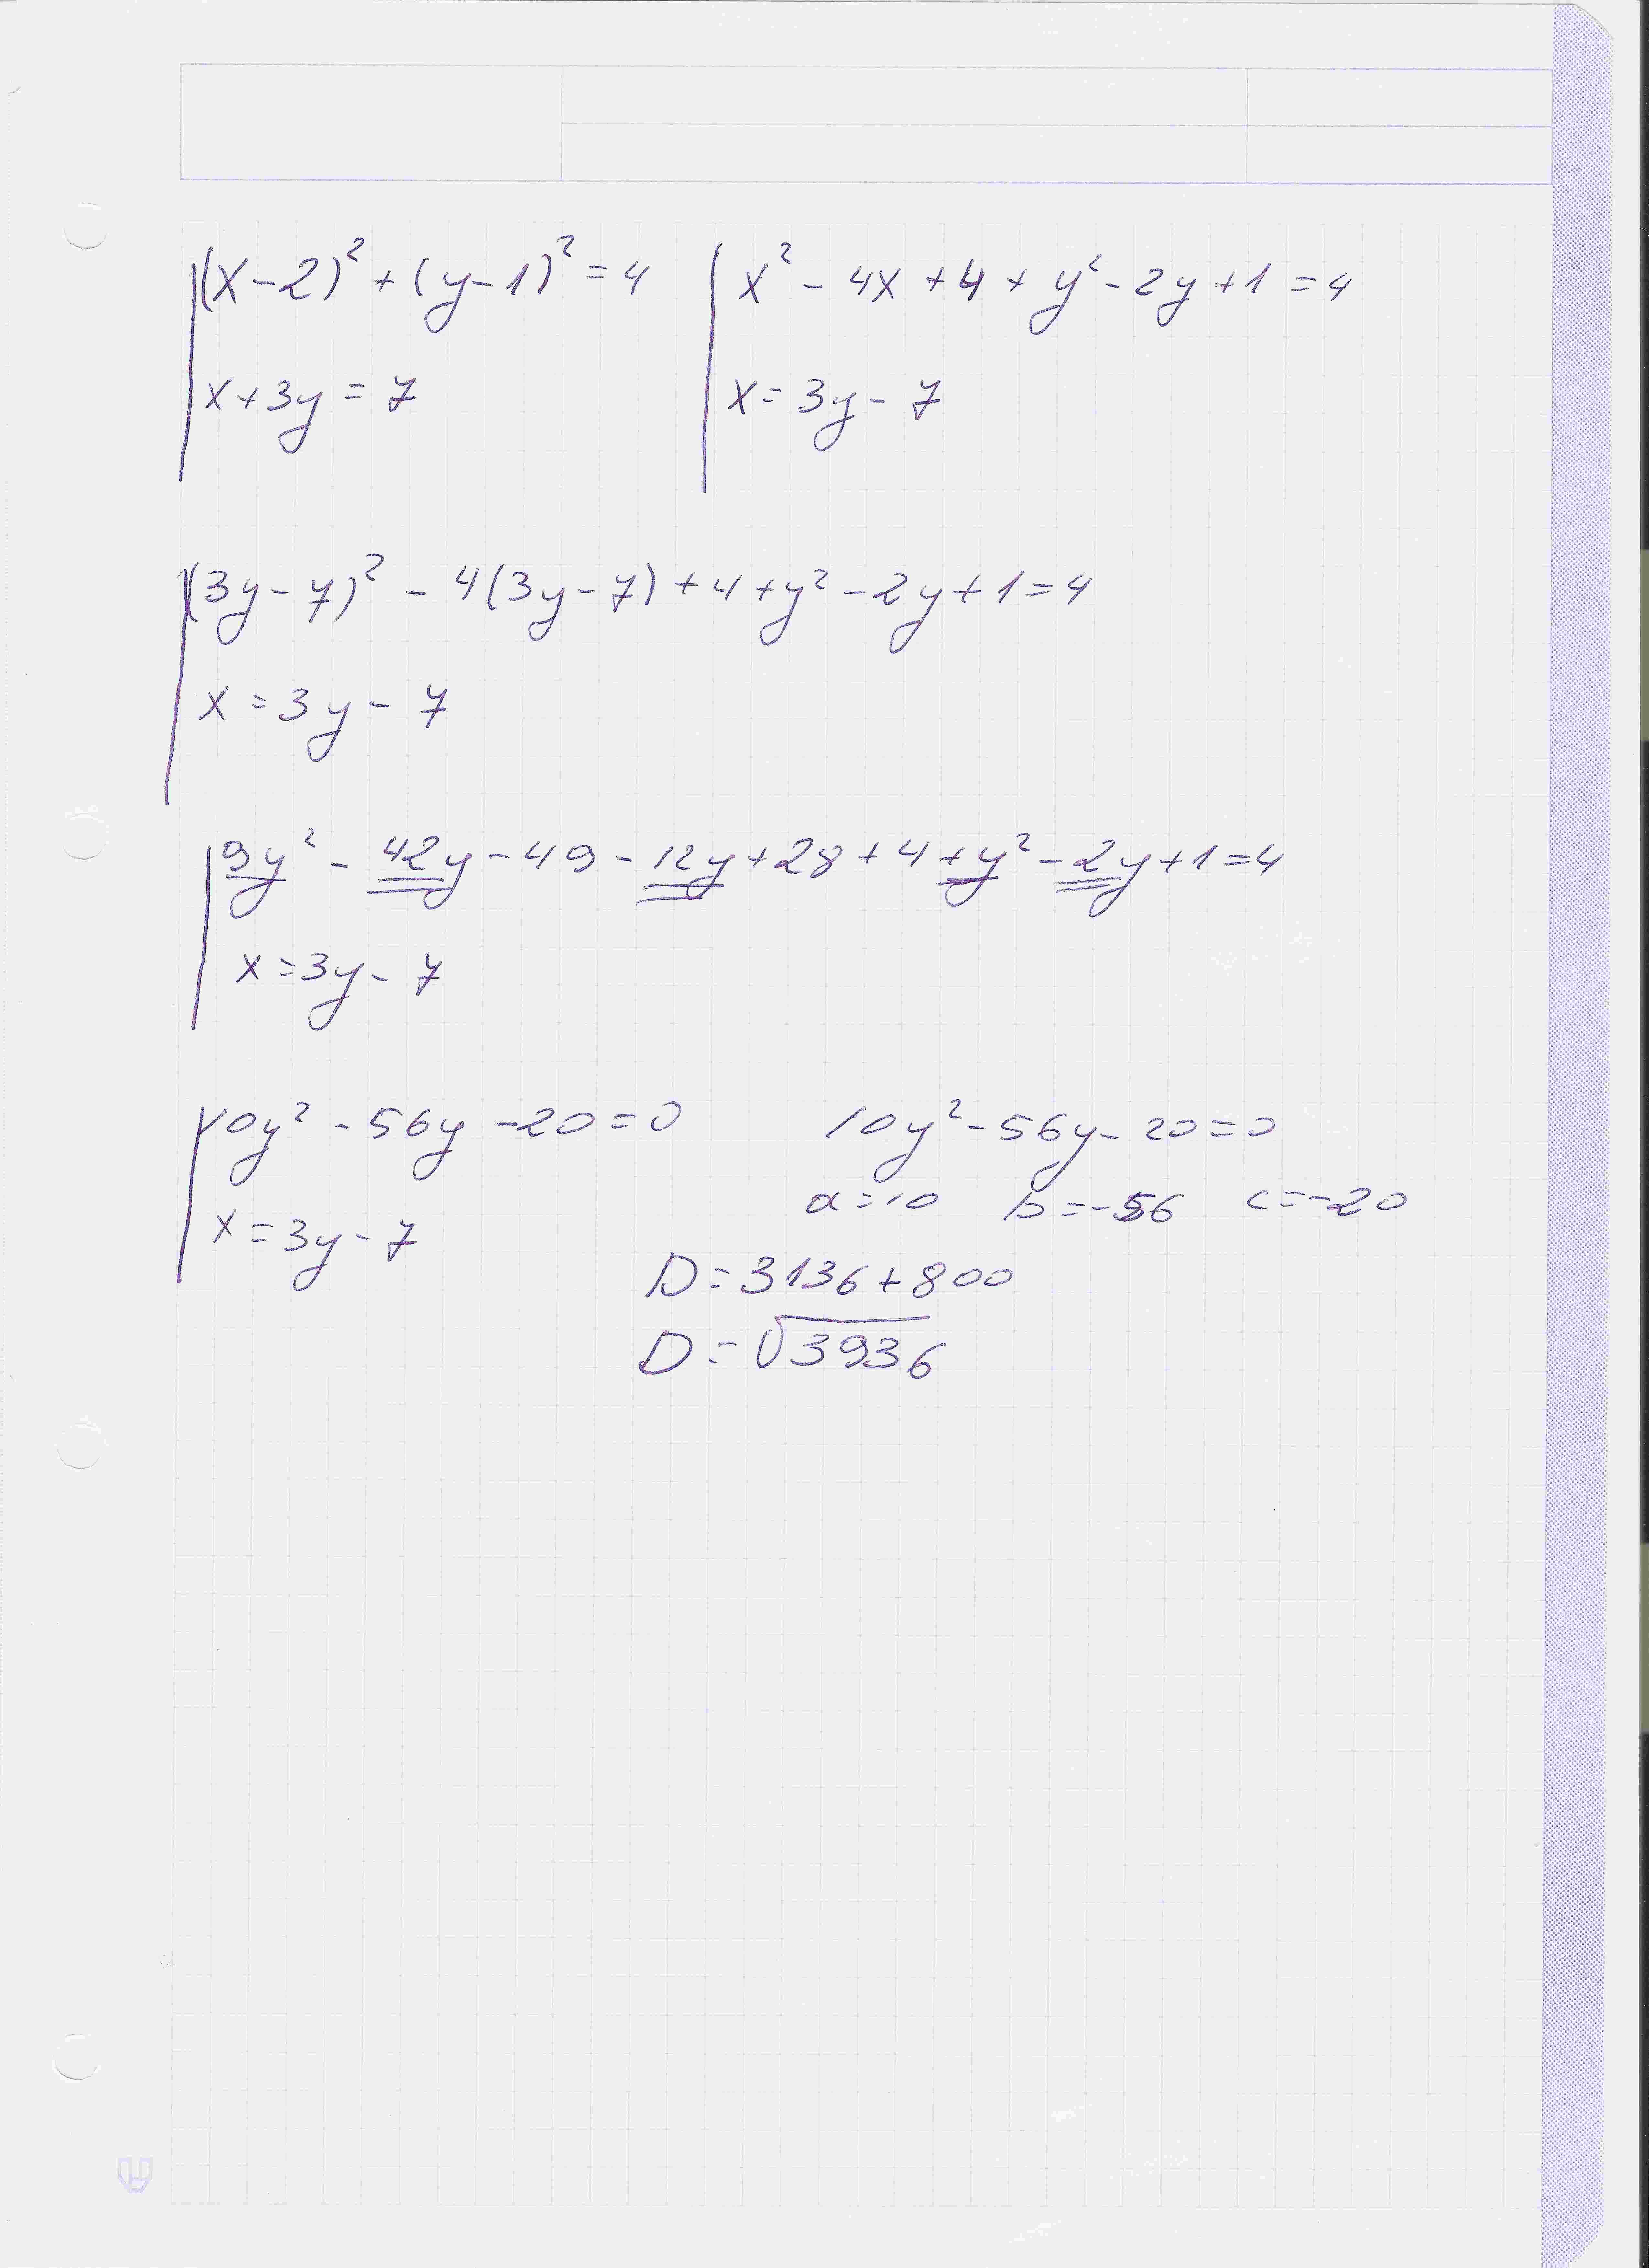 (x-2)² + (y-1)² = 4 x² - 4x + 4 + y² - 2y + 1 = 4
x + 3y = 7 x = 3y - 7
(3y - 7)² - 4(3y - 7) + 4 + y² - 2y + 1 = 4
x = 3y - 7
9y² - 42y - 49 - 12y + 28 + 4 + y² - 2y + 1 = 4
x = 3y - 7
10y² - 56y - 20 = 0 10y² - 56y - 20 = 0
a = 10 b = -56 c = -20
x = 3y - 7
D = 3136 + 800
D = √3936